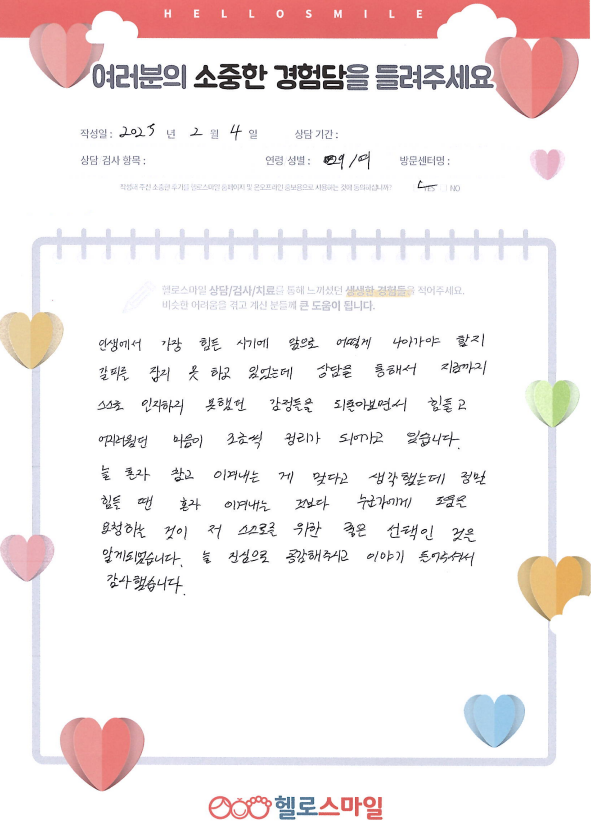 HELLOSMILE
여러분의 소중한 경험담을 들려주세요
작성일 : 2025 년 2 월 4 일 상담 기간 :
상담 검사 항목 : 연령 성별 : 29 / 여 방문센터명 :
작성해 주신 소중한 후기를 헬로스마일 홈페이지 및 온오프라인 홍보용으로 사용하는 것에 동의하십니까? YES | NO
헬로스마일 상담/검사/치료를 통해 느끼셨던 생생한 경험들을 적어주세요.
비슷한 어려움을 겪고 계신 분들께 큰 도움이 됩니다.
인생에서 가장 힘든 시기에 앞으로 어떻게 나아가야 할지
갈피를 잡지 못 하고 있었는데 상담을 통해서 지금까지
스스로 인지하지 못했던 감정들을 되돌아보면서 힘들고
어지러웠던 마음이 조금씩 정리가 되어가고 있습니다.
늘 혼자 참고 이겨내는 게 맞다고 생각했는데 정말
힘들 땐 혼자 이겨내는 것보다 누군가에게 도움을
요청하는 것이 저 스스로를 위한 좋은 선택인 것을
알게되었습니다. 늘 진심으로 공감해주시고 이야기 들어주셔서
감사했습니다.
헬로스마일